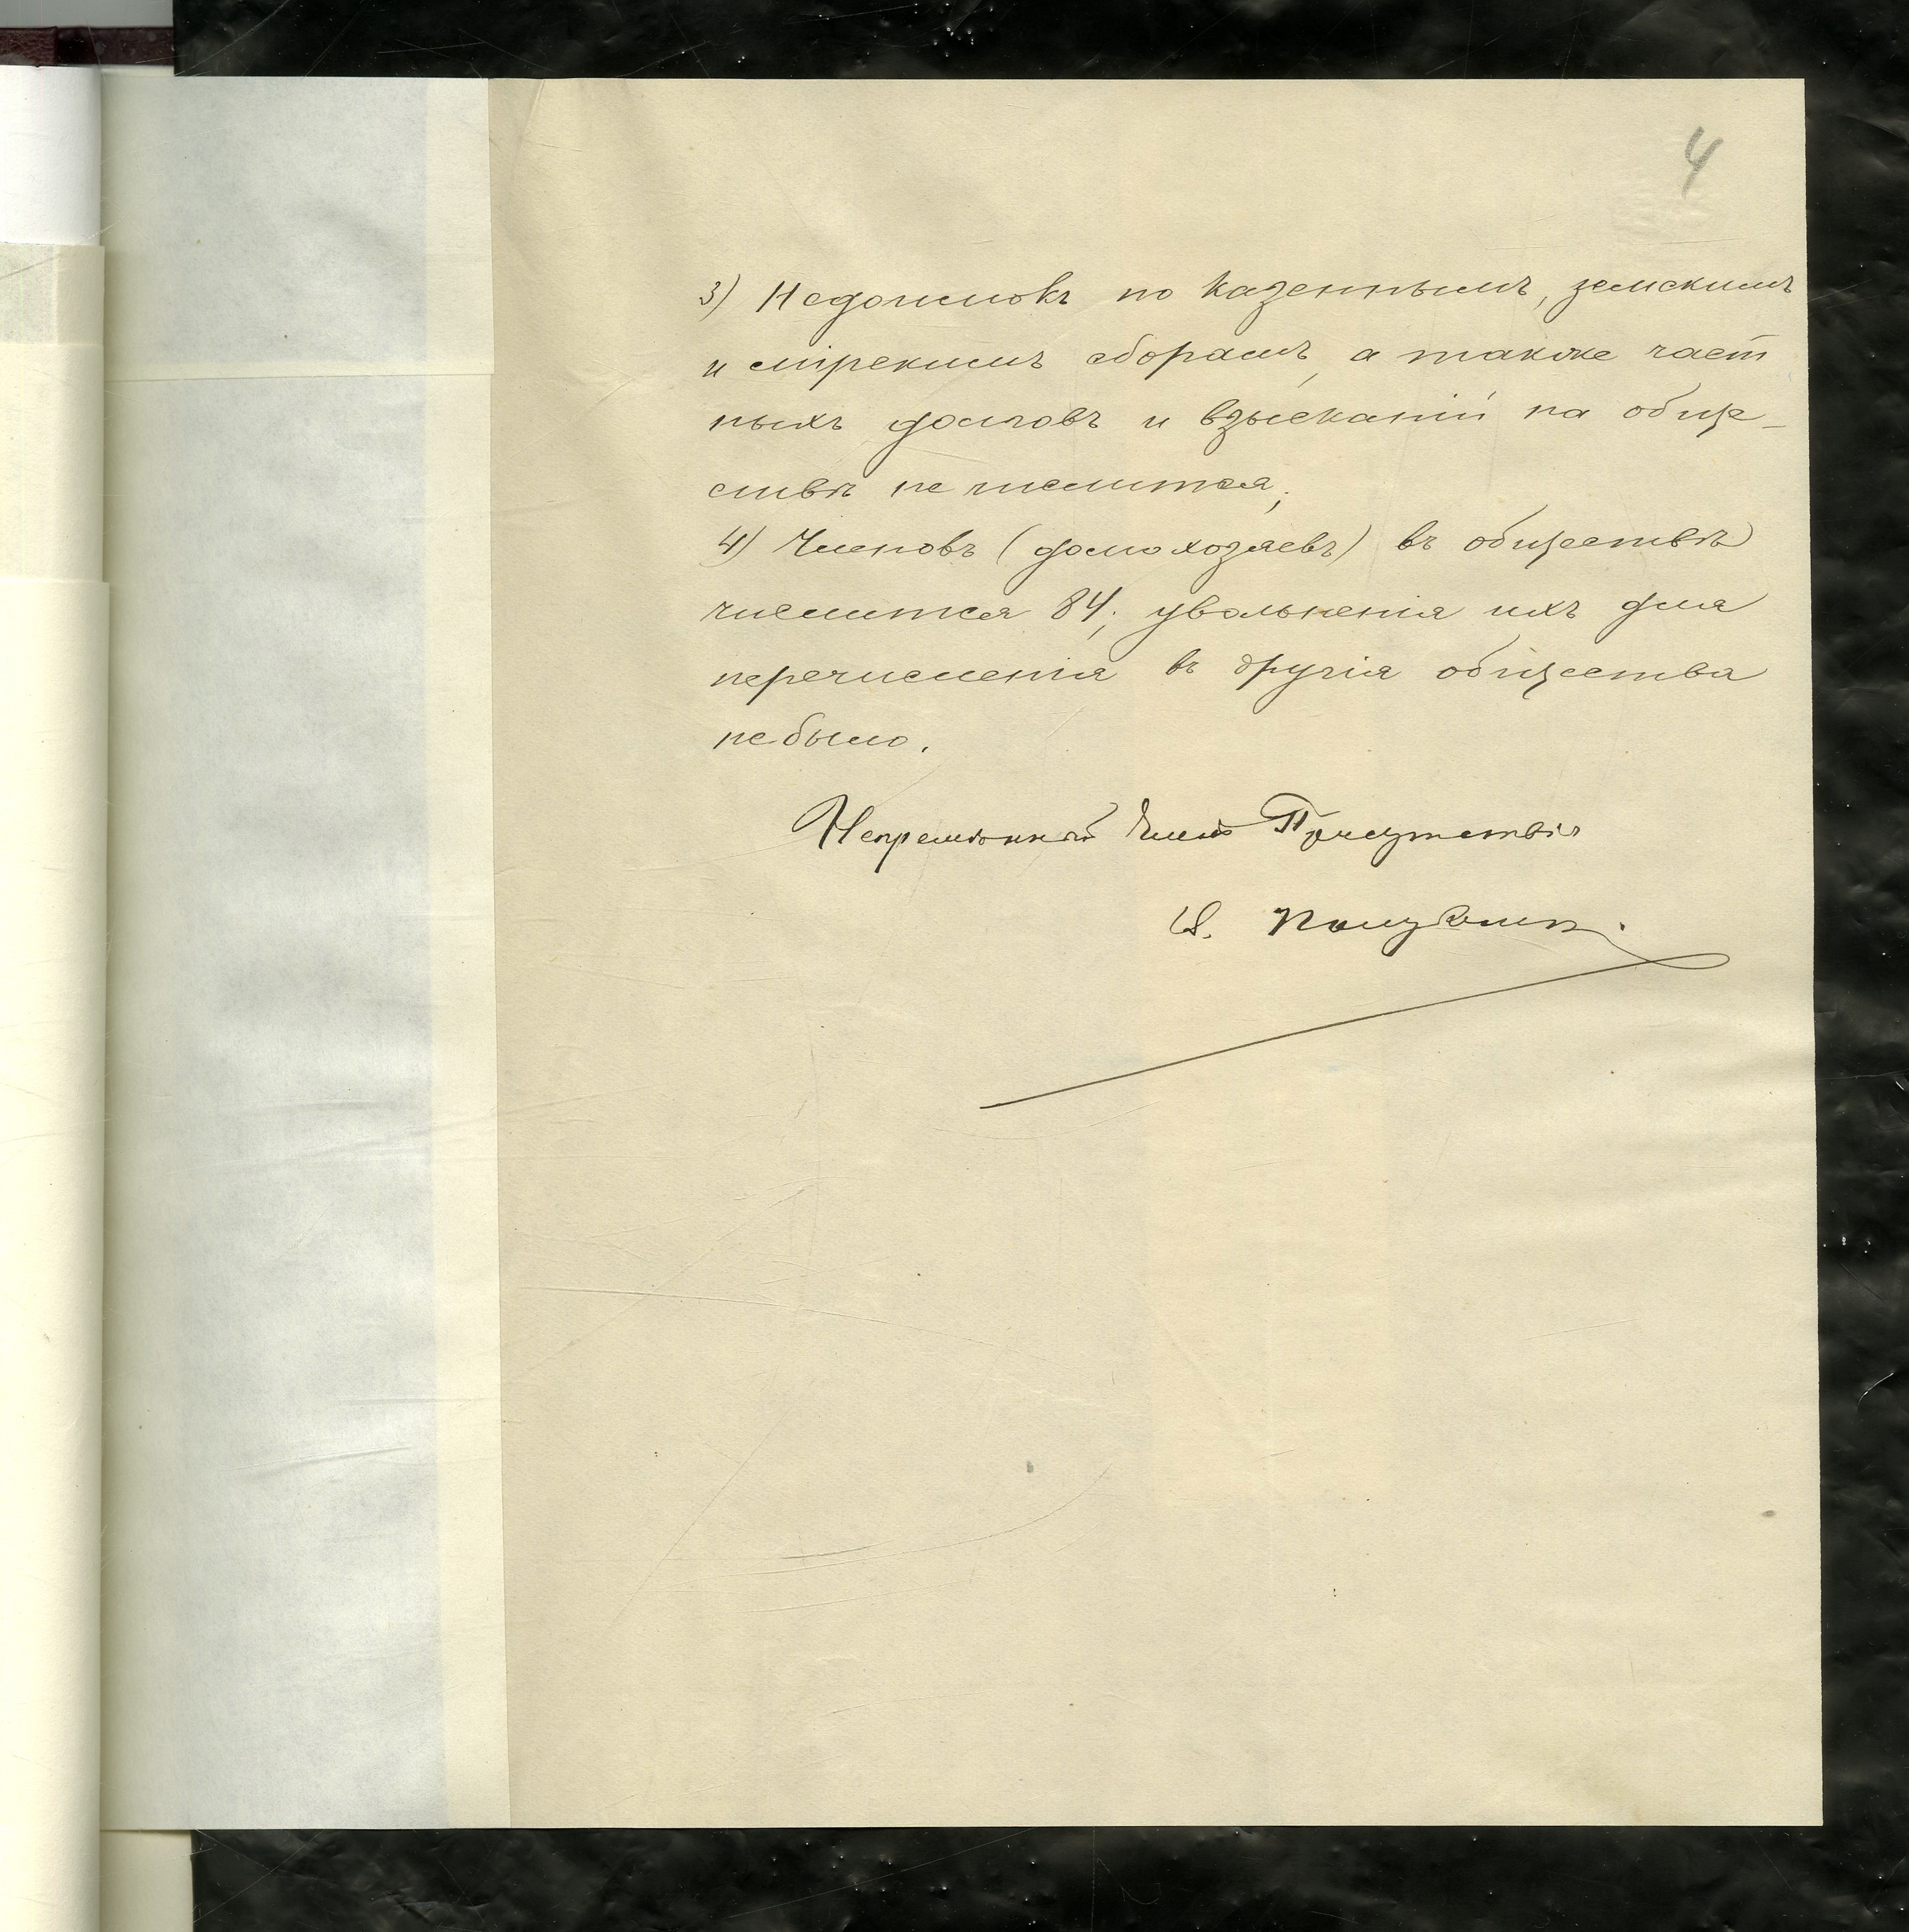 4
3) Недоимокъ по казеннымъ, земскимъ
и мірскимъ сборамъ, а также част
ныхъ долговъ и взысканій на обще-
ствѣ не числится;
4) Членовъ (домохозяевъ) въ обществѣ
числится 84; увольненія ихъ для
перечисленія въ другія общества
не было.
Непремѣнный Членъ Присутствія